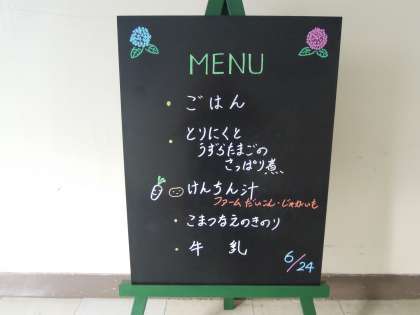 MENU
・ごはん
・とりにくと
うずらたまごの
さっぱり煮
けんちん汁
ファーム だいこん・じゃがいも
・こまつなえのきのり
・牛 乳
6/24